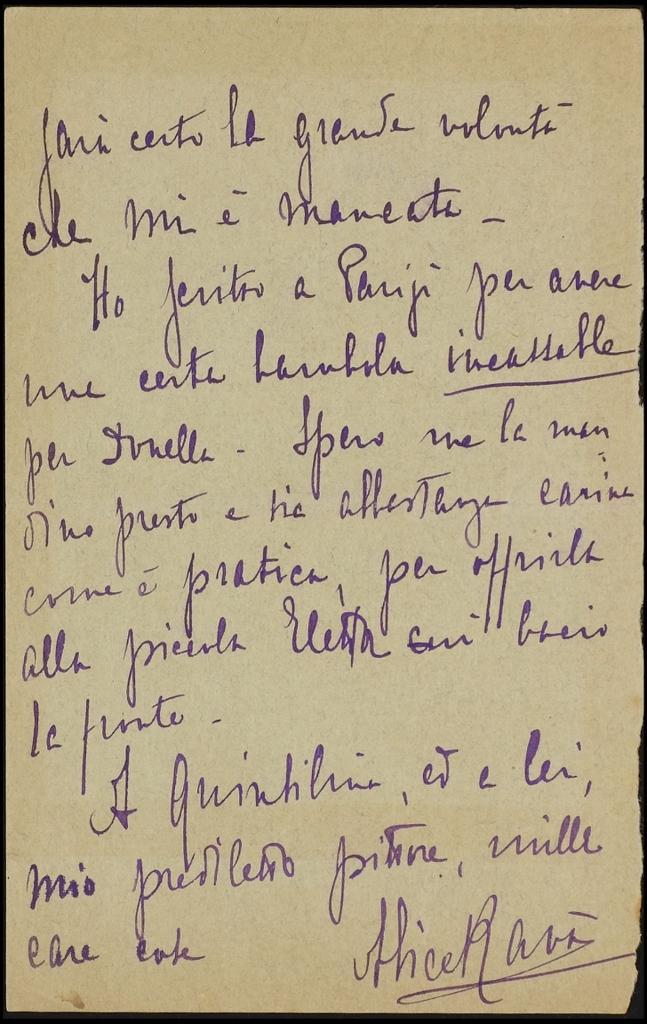 sarà certo la grande volontà
che mi è mancata –
Ho scritto a Parigi per avere
una certa bambola incassable
per Donella – Spero me la man
dino presto e sia abbastanza carina
come è pratica, per offrirla
alla piccola Eletta cui bacio
la fronte –
A Quintilina, ed a lei,
mio prediletto pittore, mille
care cose
Alice Ravà